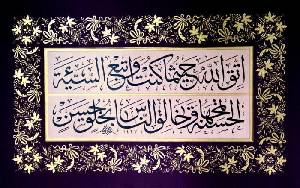 اتق الله حيثما كنت واتبع السيئة
الحسنة تمحها وخالق الناس بخلق حسن